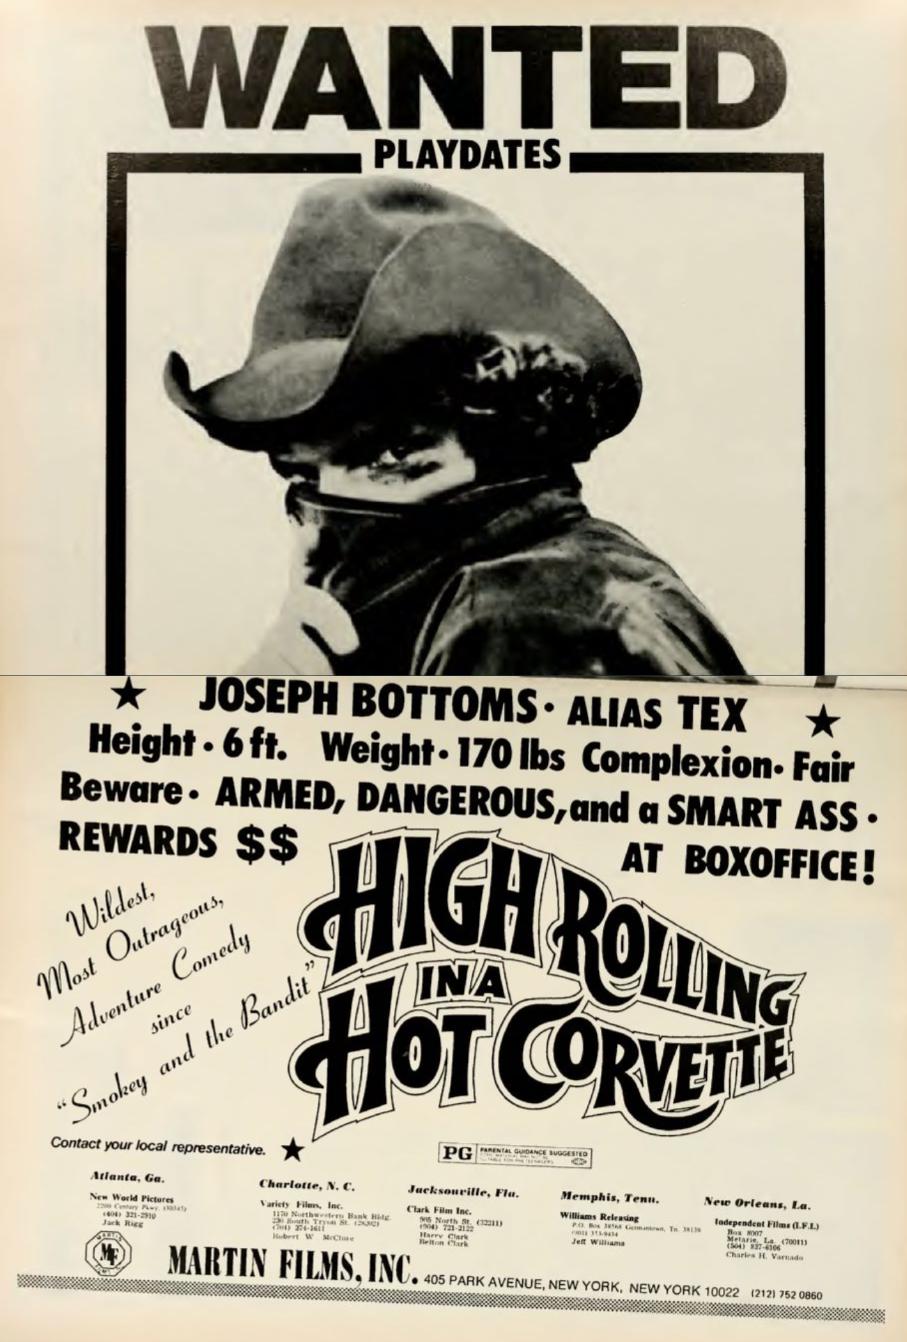 WANTED
PLAYDATES
★ JOSEPH BOTTOMS • ALIAS TEX ★
Height • 6 ft. Weight • 170 lbs Complexion • Fair
Beware • ARMED, DANGEROUS, and a SMART ASS •
REWARDS $$ AT BOXOFFICE!
Wildest,
Most Outrageous,
Adventure Comedy
since
"Smokey and the Bandit"
HIGH ROLLING
IN A
HOT CORVETTE
Contact your local representative. ★
PG PARENTAL GUIDANCE SUGGESTED
Atlanta, Ga.
New World Pictures
2200 Century Pkwy. (30345)
(404) 321-2910
Jack Rigg
Charlotte, N. C.
Variety Films, Inc.
1170 Northwestern Bank Bldg.
230 South Tryon St. (28202)
(704) 374-1611
Robert W McClure
Jacksonville, Fla.
Clark Film Inc.
905 North St. (32211)
(904) 721-2122
Harry Clark
Belton Clark
Memphis, Tenn.
Williams Releasing
P.O. Box 38568 Germantown, Tn. 38138
Jeff Williams
New Orleans, La.
Independent Films (I.F.I.)
Box 8007
Metairie, La. (70011)
(504) 837-6106
Charles H. Varnado
MARTIN
MF
FILMS
MARTIN FILMS, INC. 405 PARK AVENUE, NEW YORK, NEW YORK 10022 (212) 752 0860